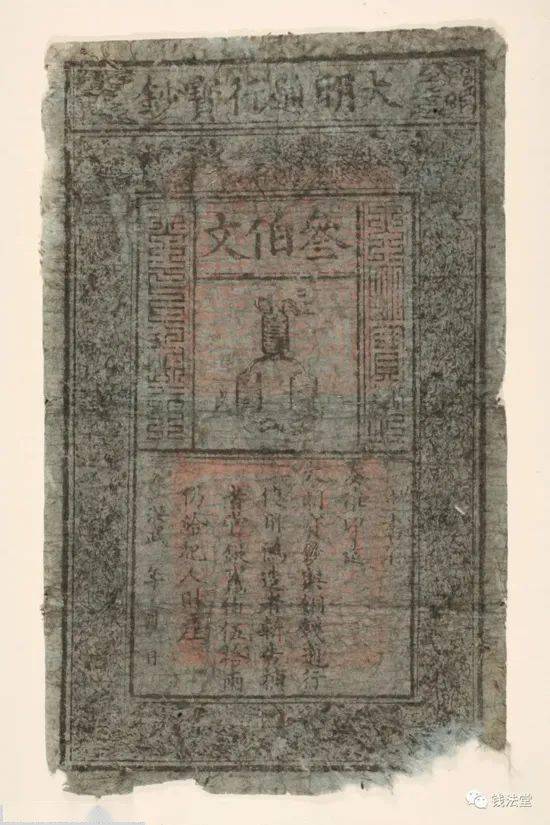 大明通行寶鈔
叅伯文
奏准印造
大明寶鈔與銅錢通行
使用偽造者斬告捕
者賞銀貳伯伍拾兩
仍給犯人財產
洪武 年 月 日
钱法堂